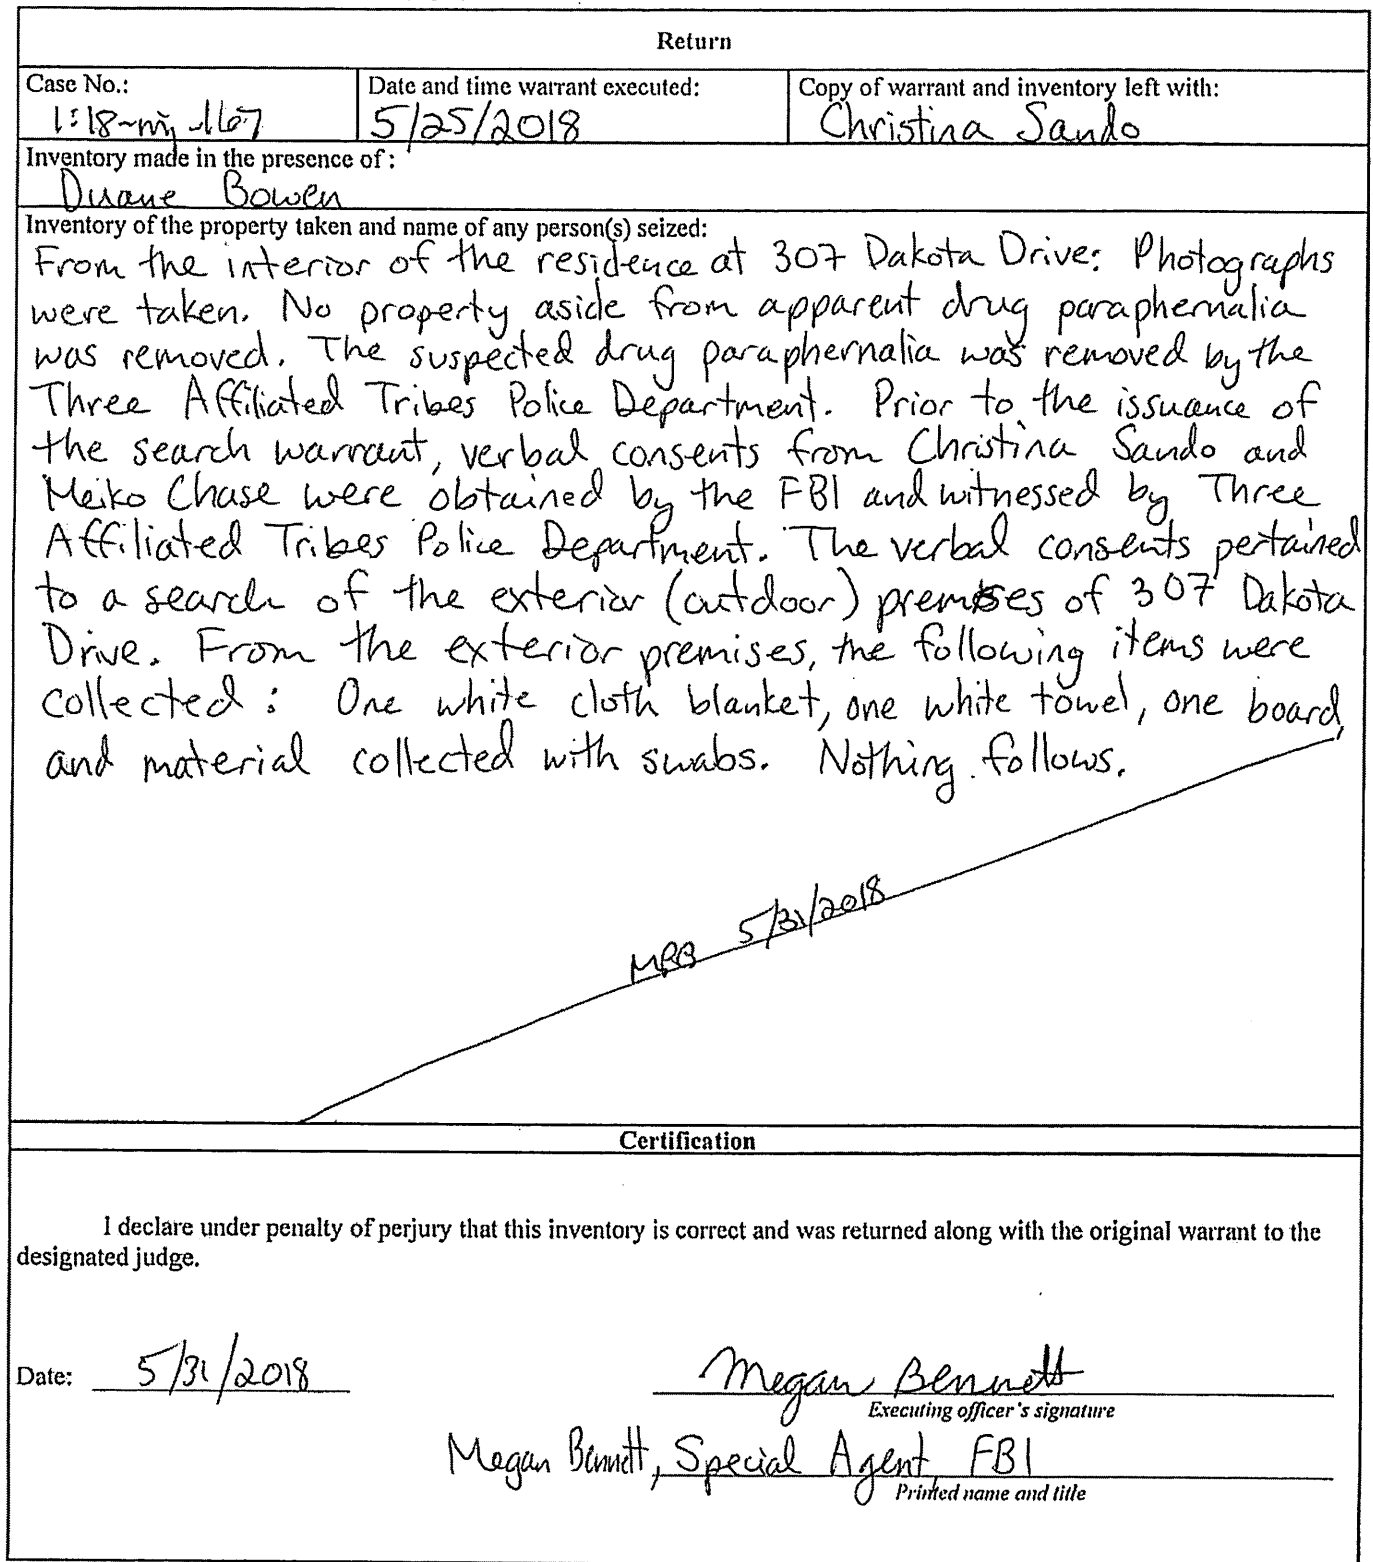 Return
Case No.:
1:18-mj-167
Date and time warrant executed:
5/25/2018
Copy of warrant and inventory left with:
Christina Sando
Inventory made in the presence of :
Duane Bowen
Inventory of the property taken and name of any person(s) seized:
From the interior of the residence at 307 Dakota Drive: Photographs
were taken. No property aside from apparent drug paraphernalia
was removed. The suspected drug paraphernalia was removed by the
Three Affiliated Tribes Police Department. Prior to the issuance of
the search warrant, verbal consents from Christina Sando and
Meiko Chase were obtained by the FBI and witnessed by Three
Affiliated Tribes Police Department. The verbal consents pertained
to a search of the exterior (outdoor) premises of 307 Dakota
Drive. From the exterior premises, the following items were
collected: One white cloth blanket, one white towel, one board,
and material collected with swabs. Nothing follows.
5/31/2018
Certification
I declare under penalty of perjury that this inventory is correct and was returned along with the original warrant to the
designated judge.
Date: 5/31/2018
Megan Bennett
Executing officer's signature
Megan Bennett, Special Agent, FBI
Printed name and title